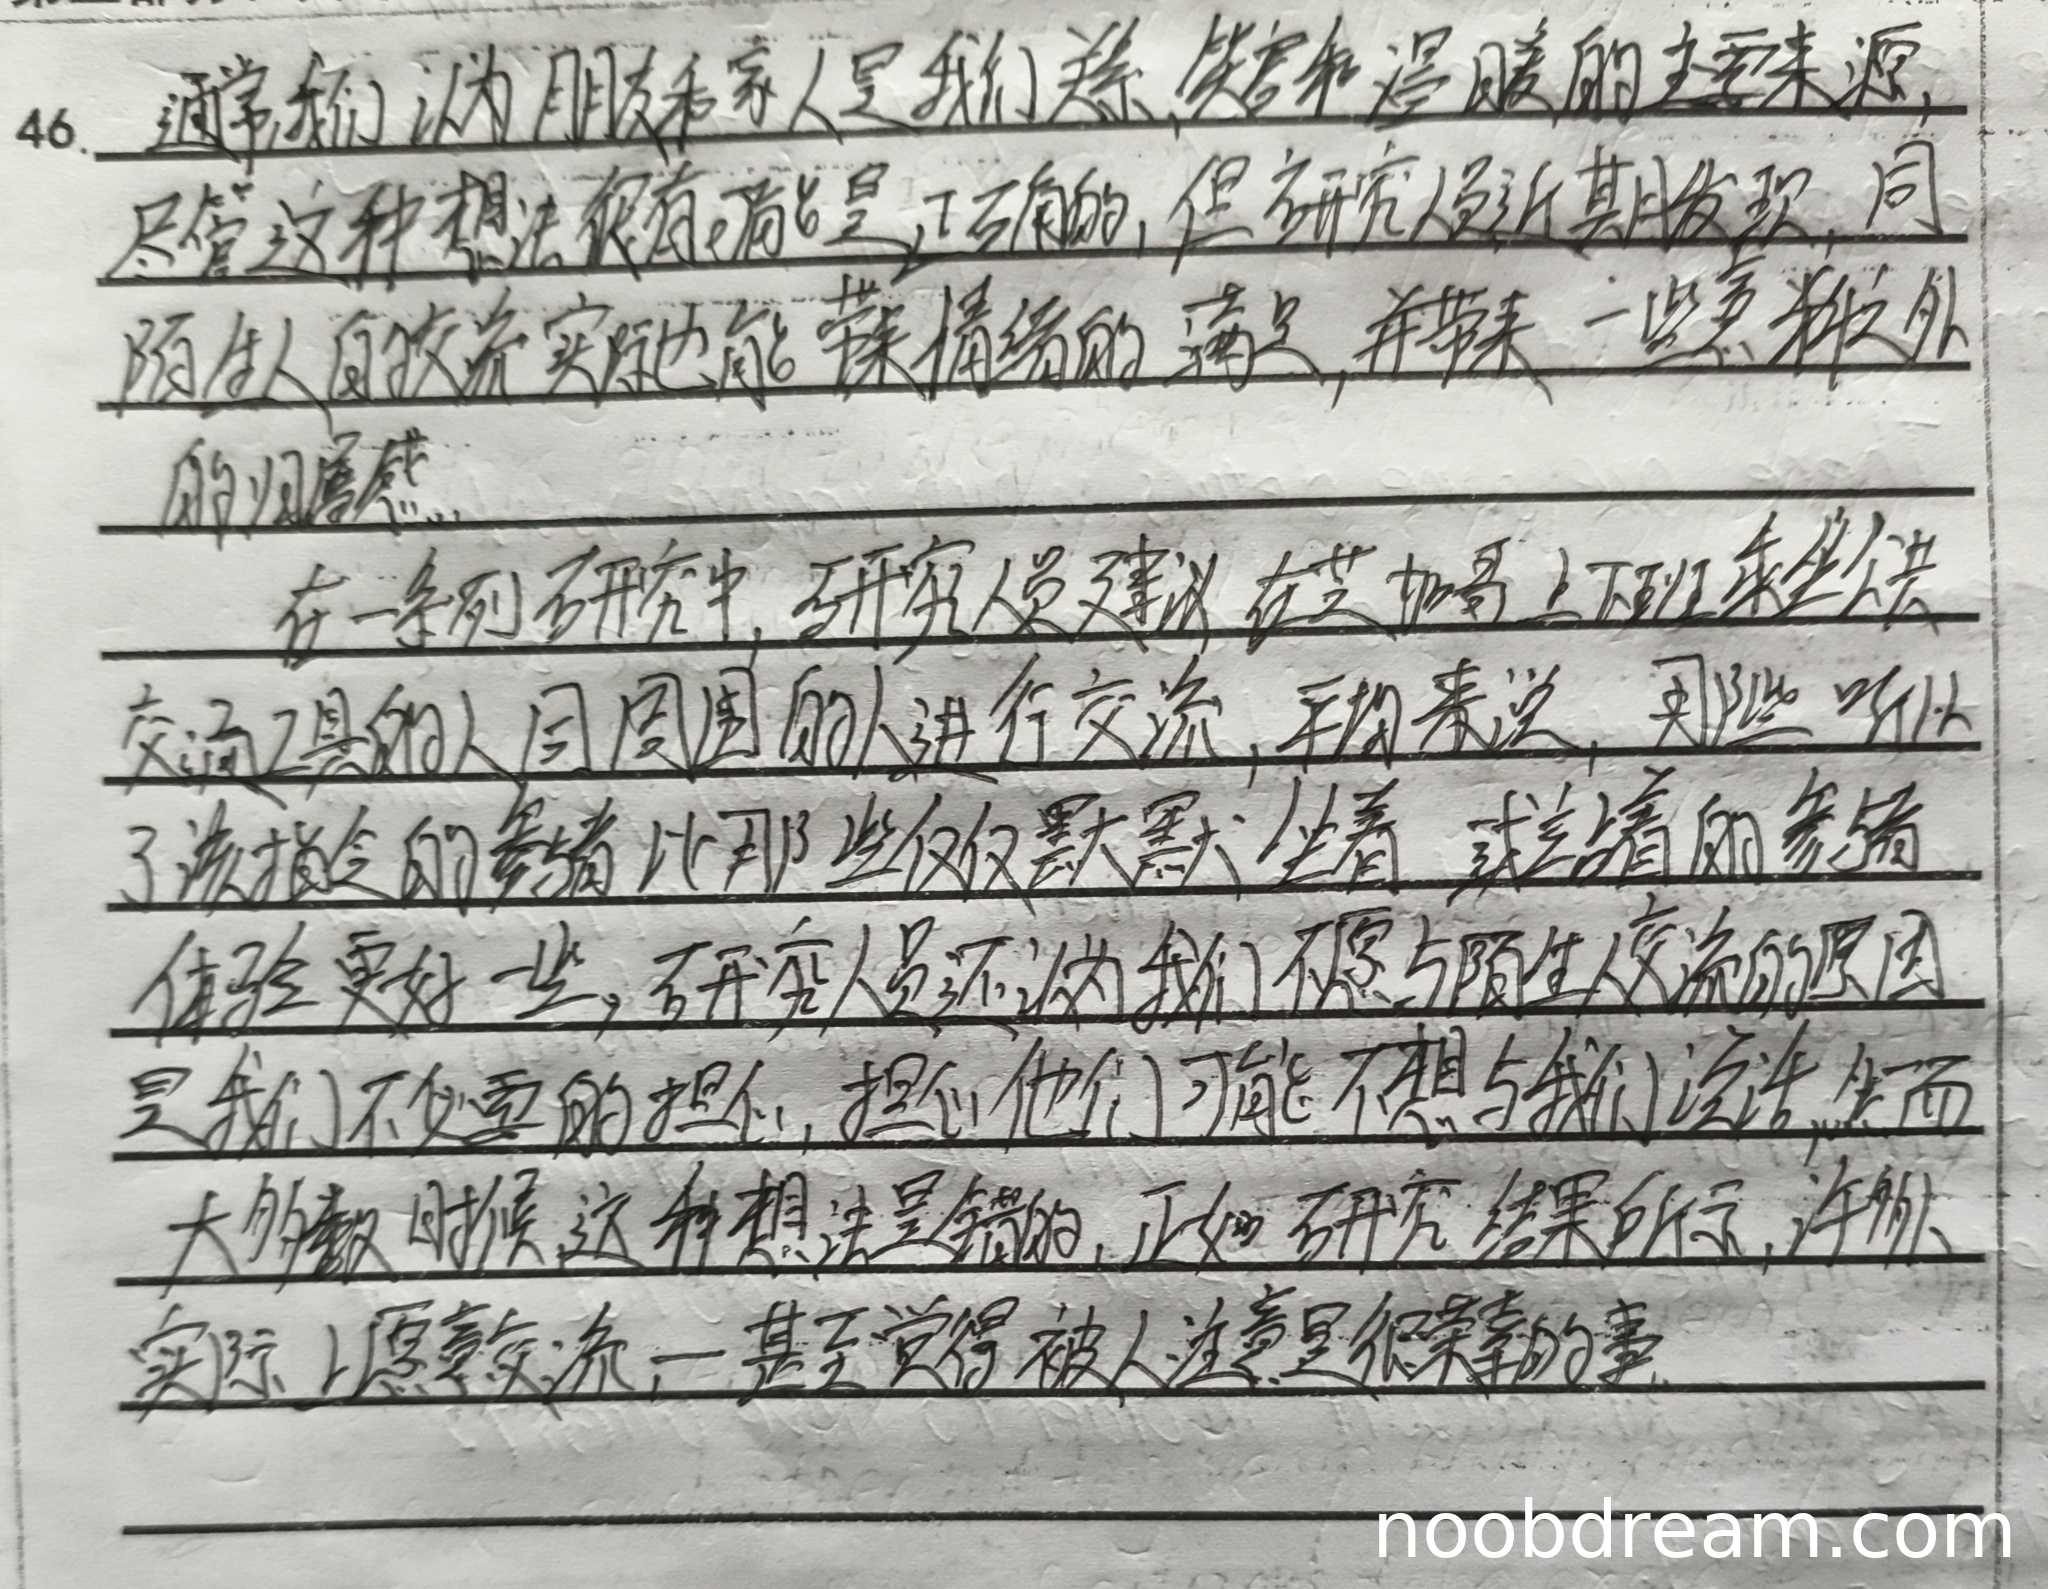 46. 通常我们认为朋友和家人是我们关系,笑容和温暖的主要来源,
尽管这种想法很有可能是正确的,但研究人员近期发现,同
陌生人的交流实际也能带来情绪的满足,并带来一些意料之外
的归属感.
在一系列研究中,研究人员建议在芝加哥上下班乘坐公共
交通工具的人同周围的人进行交流,平均来说,那些听从
了该指令的参与者比那些仅仅默默坐着或站着的参与者
体验更好一些,研究人员还认为我们不愿与陌生人交流的原因
是我们不必要的担心,担心他们可能不想与我们谈话,然而
大多数时候这种想法是错的,正如研究结果所示,许多人
实际上愿意交流,一甚至觉得被人注意是很荣幸的事.
noobdream.com